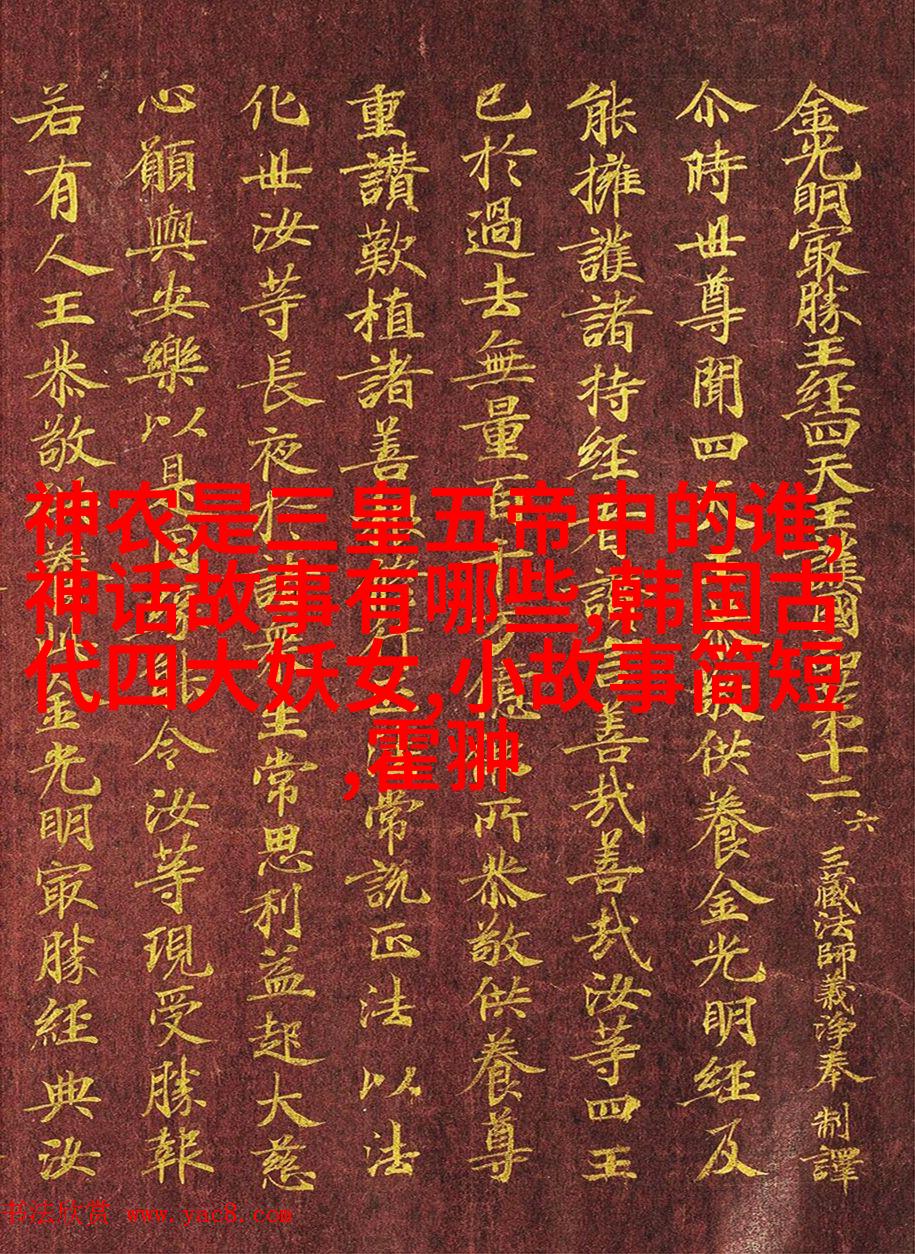 金光明冣勝王經四天王護國品第十二 六 三藏法師義淨奉 制譯
尒時世尊聞四天王恭敬供養金光明經及
能擁護諸持經者讚言善哉善哉汝等四王
已於過去無量百千万億佛所恭敬供養尊
重讚歎植諸善根修行正法常說正法以法
化世汝等長夜於諸眾生常思利益起大慈
心願與安樂以是因緣能令汝等現受勝報
若有人王恭敬供養此金光明冣勝經典汝
神农是三皇五帝中的谁,
神话故事有哪些,韩国古
代四大妖女,小故事简短
,霍翀
书法欣赏 www.yac8.com